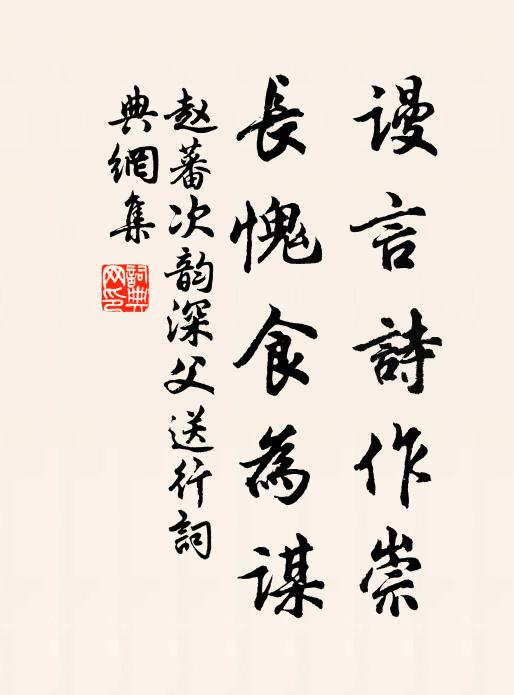 谩言詩作崇
長愧食為谋
赵蕃次韵深父送行詞
典網集
詞典
网印